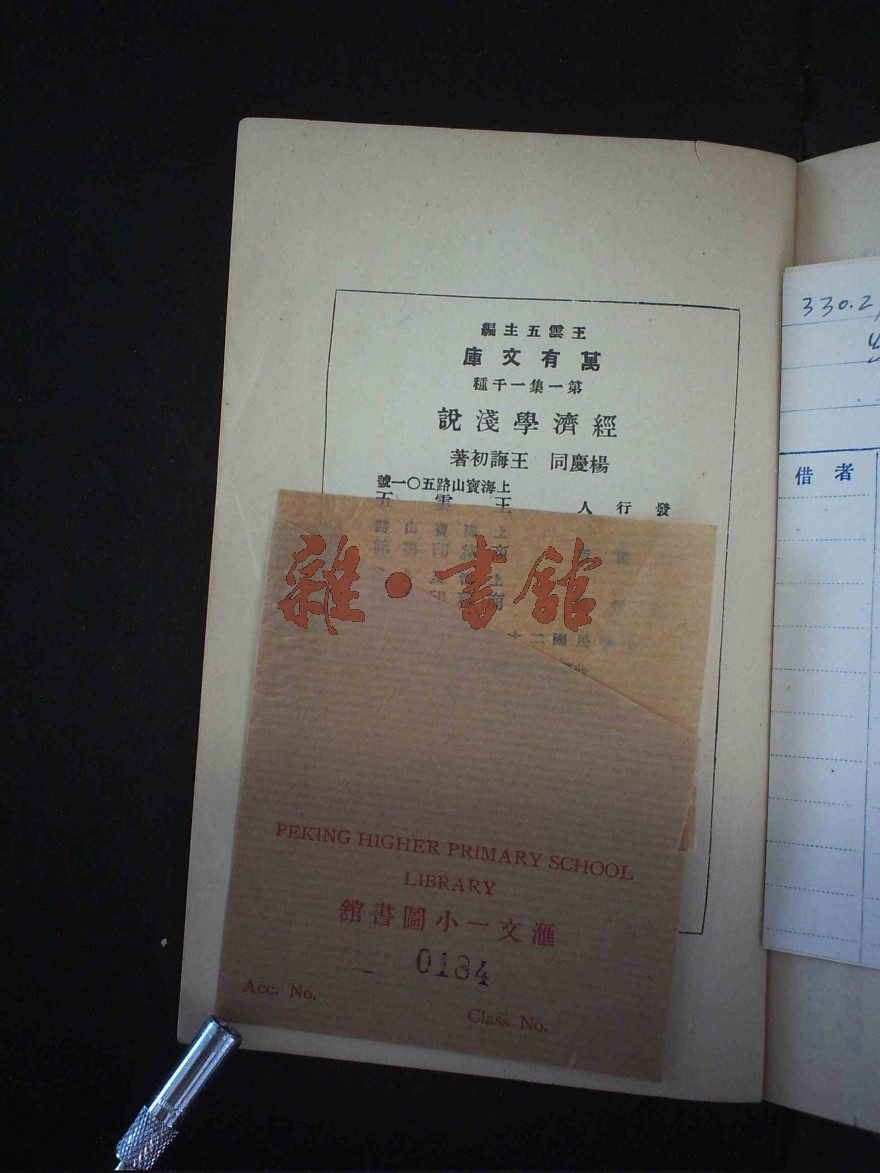 王雲五主編
萬有文庫
第一集一千種
經濟學淺說
楊慶同 王誨初著
上海寶山路五〇一號
發行人 王雲五
上海寶山路
商務印書館
上海
商務印
民國二十
雜·書館
PEKING HIGHER PRIMARY SCHOOL
LIBRARY
滙文一小圖書館
0134
Acc. No.
Class No.
330.2
借者